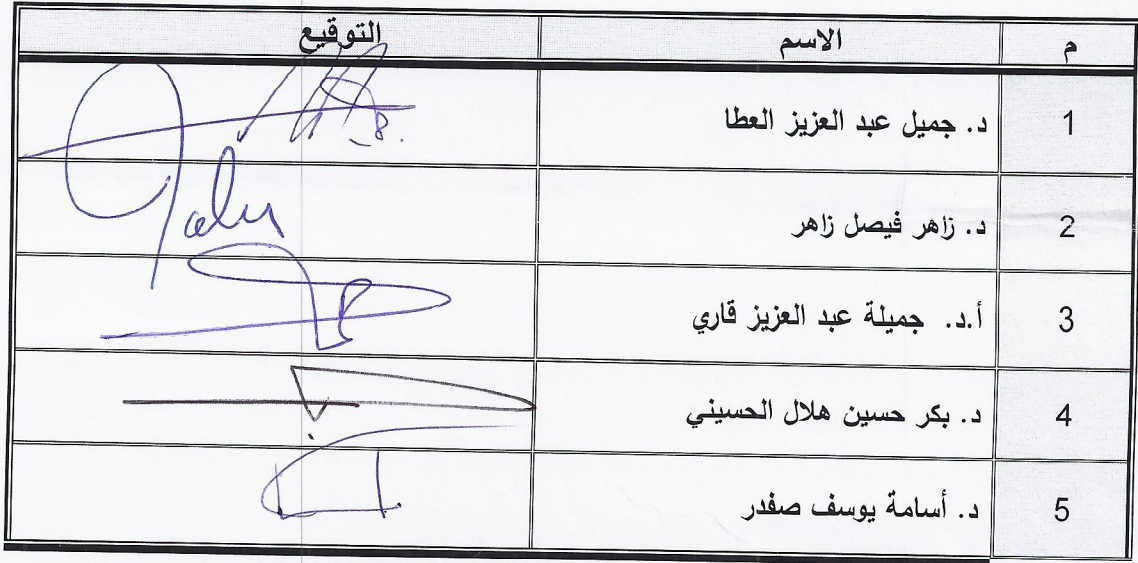 م الاسم التوقيع
1 د. جميل عبد العزيز العطا
2 د. زاهر فيصل زاهر
3 أ.د. جميلة عبد العزيز قاري
4 د. بكر حسين هلال الحسيني
5 د. أسامة يوسف صفدر